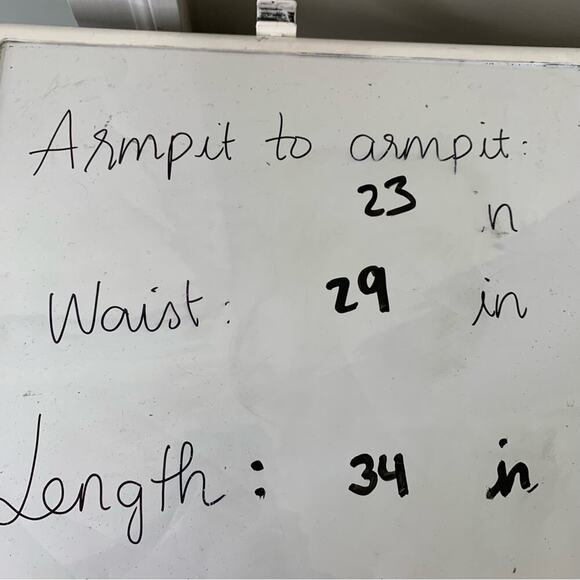 Armpit to armpit:
23 in
Waist: 29 in
Length: 34 in